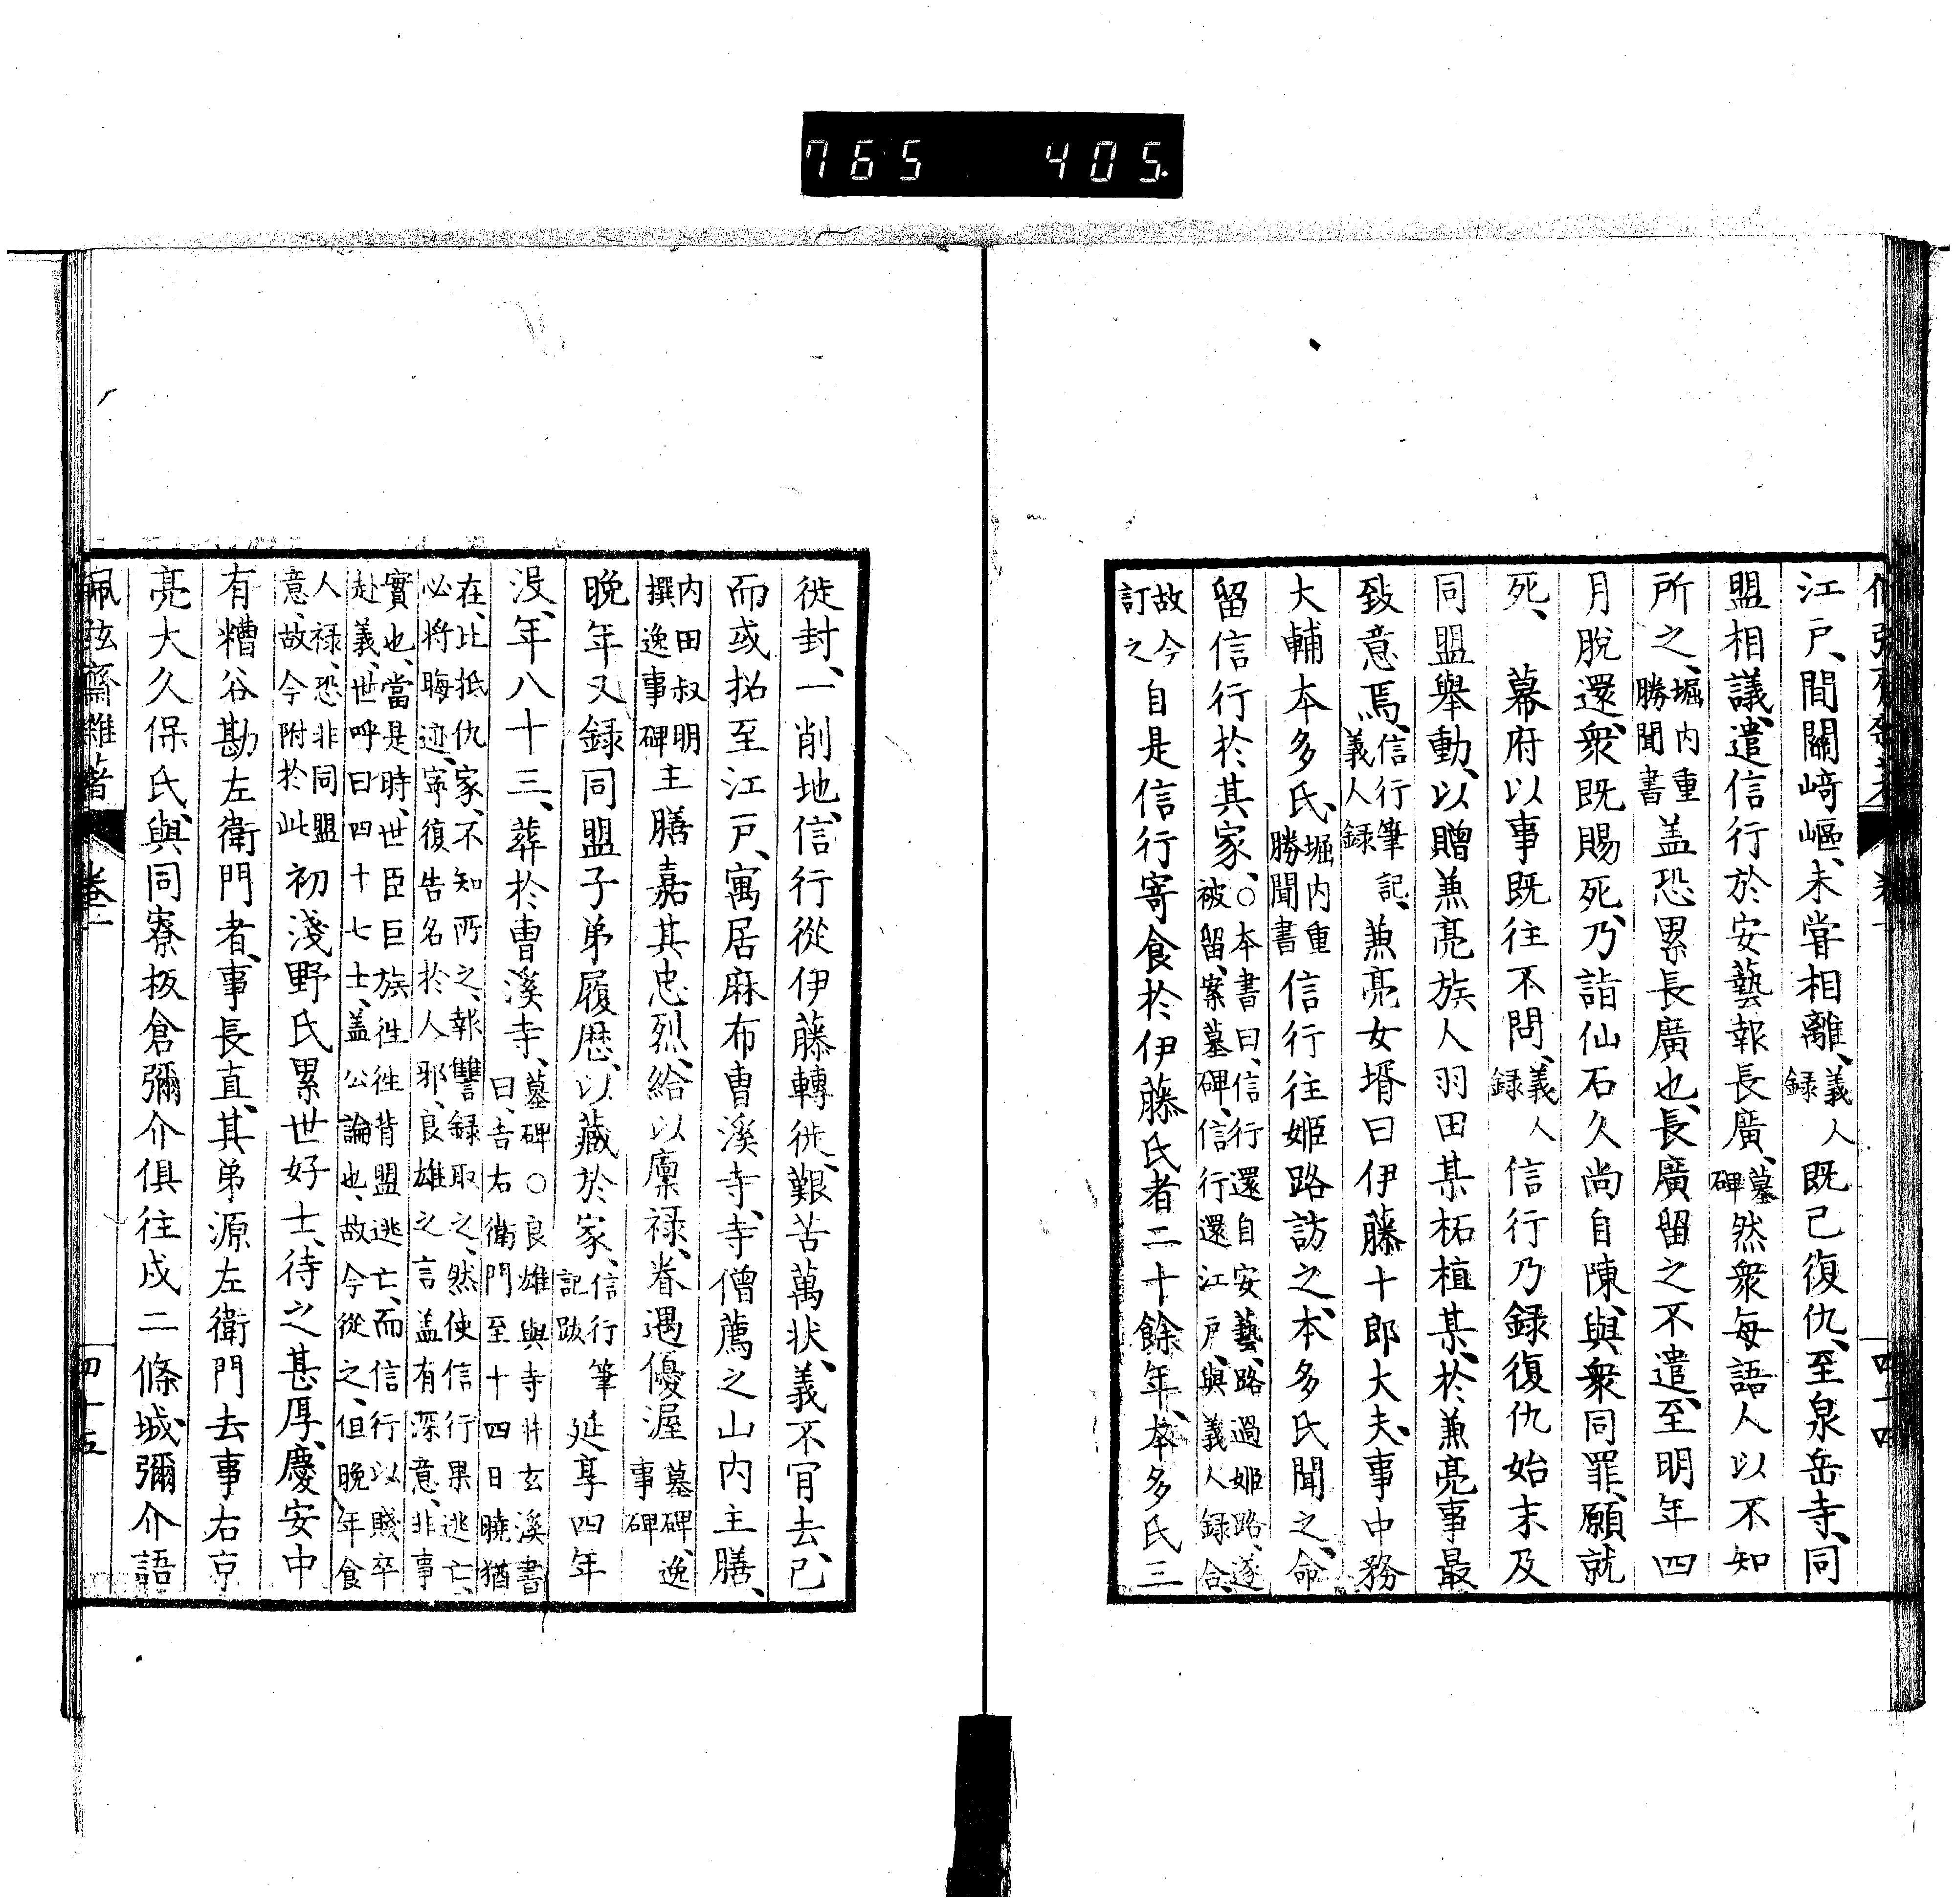 765 405.
江戸、間關﨑嶇、未甞相離、義人録既已復仇、至泉岳寺、同
盟相議、遣信行於安藝報長廣、墓碑然衆每語人以不知
所之、堀内重勝聞書盖恐累長廣也、長廣留之不遣、至明年四
月脫還、衆既賜死、乃詣仙石久尚自陳、與衆同罪、願就
死、幕府以事既往不問、義人録信行乃録復仇始末及
同盟舉動、以贈兼亮族人羽田某柘植某、於兼亮事最
致意焉、信行筆記、義人録兼亮女壻曰伊藤十郎大夫、事中務
大輔本多氏、堀内重勝聞書信行往姬路訪之、本多氏聞之、命
留信行於其家、○本書曰、信行還自安藝、路過姬路、遂被留、案墓碑、信行還江戸、與義人録合、
故今訂之自是信行寄食於伊藤氏者二十餘年、本多氏三
徙封、一削地、信行從伊藤轉徙、艱苦萬状、義不肯去、已
而或招至江戸、寓居麻布曹溪寺、寺僧薦之山内主膳、
内田叔明撰逸事碑主膳嘉其忠烈、給以廩禄、眷遇優渥墓碑、逸事碑
晩年又録同盟子弟履歴、以藏於家、信行筆記跋延享四年
没、年八十三、葬於曹溪寺、墓碑○良雄與寺井玄溪書曰、吉右衛門至十四日曉猶
在、比抵仇家、不知所之、報讐録取之、然使信行果逃亡、必將晦迹、寧復告名於人邪、良雄之言盖有深意、非事
實也、當是時、世臣巨族徃徃背盟逃亡、而信行以賤卒赴義、世呼曰四十七士、盖公論也、故今從之、但晩年食
人禄、恐非同盟意、故今附於此初淺野氏累世好士、待之甚厚、慶安中
有糟谷勘左衛門者、事長直、其弟源左衛門去事右京
亮大久保氏、與同寮板倉彌介俱往戍二條城、彌介語
佩弦齋雜著 卷二 四十五